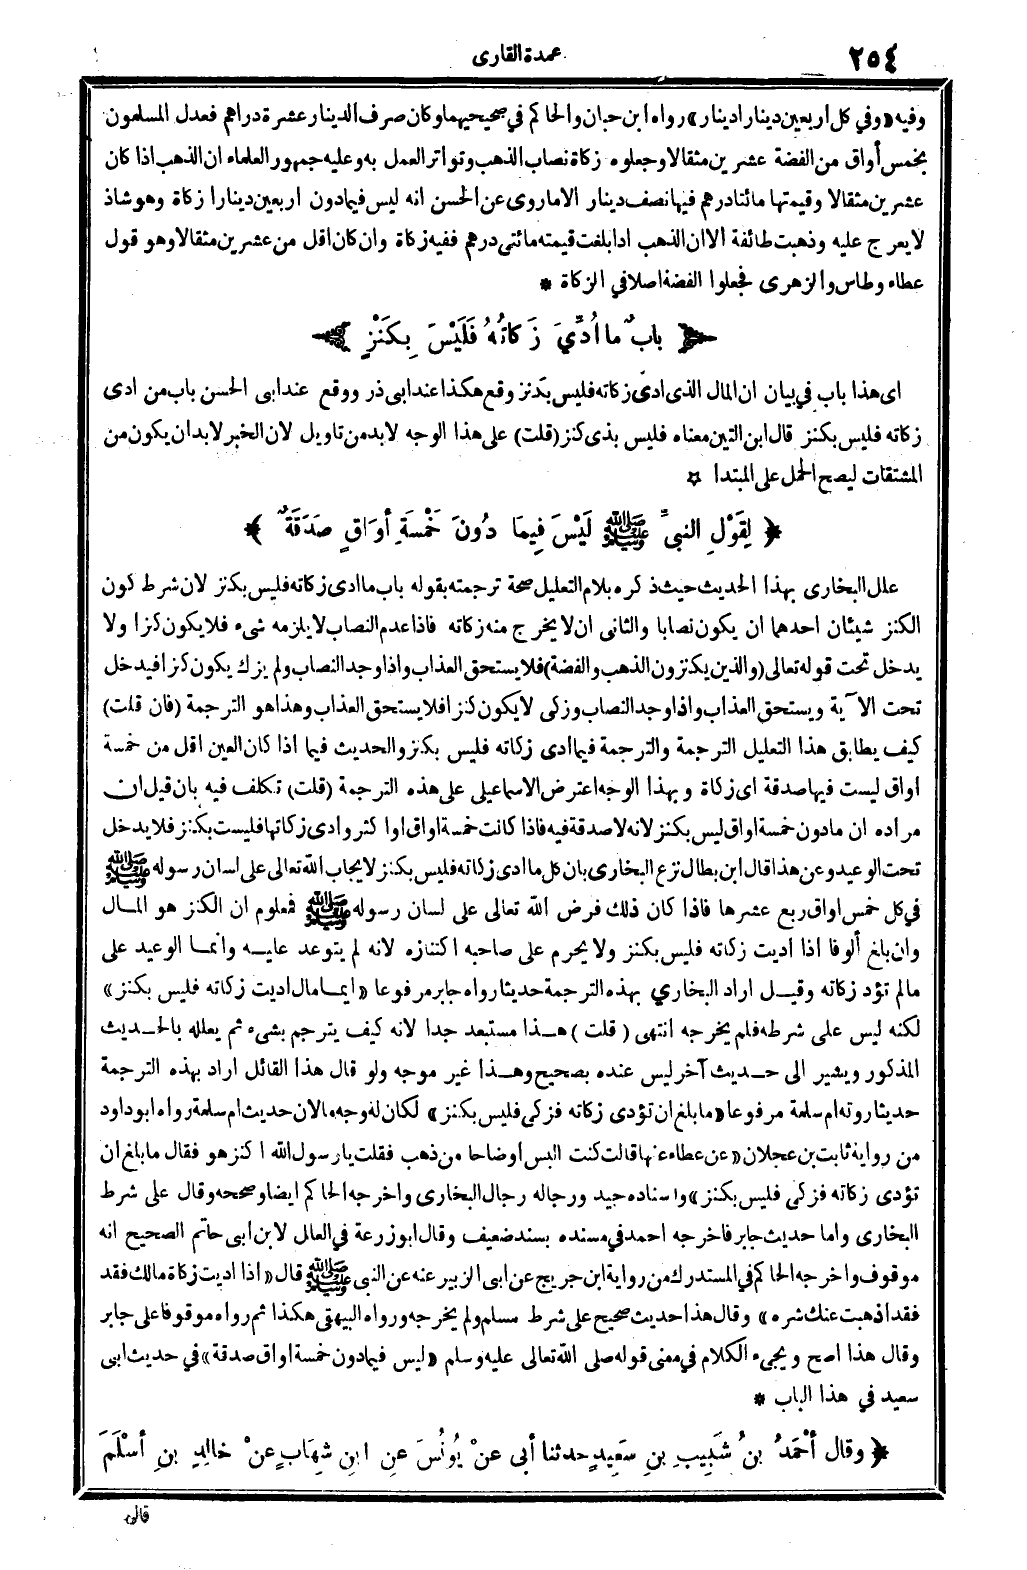 ٢٥٤
عمدة القارى
وفيه «وفي كل اربعين دينارا دينار» رواه ابن حبان والحاكم في صحيحيهما وكان صرف الدينار عشرة دراهم فعدل المسلمون
بخمس أواق من الفضة عشرين مثقالا وجعلوه زكاة نصاب الذهب وتواتر العمل به وعليه جمهور العلماء ان الذهب اذا كان
عشرين مثقالا وقيمتها مائتا درهم فيها نصف دينار الا ما روى عن الحسن انه ليس فيما دون اربعين دينارا زكاة وهو شاذ
لا يعرج عليه وذهبت طائفة الا ان الذهب اذا بلغت قيمته مائتى درهم ففيه زكاة وان كان اقل من عشرين مثقالا وهو قول
عطاء وطاس والزهرى فجعلوا الفضة اصلا في الزكاة *
﴿ بابٌ ما أُدِّيَ زَكاتُهُ فَلَيْسَ بِكَنْزٍ ﴾
اى هذا باب في بيان ان المال الذى ادى زكاته فليس بكنز وقع هكذا عند ابى ذر ووقع عند ابى الحسن باب من ادى
زكاته فليس بكنز قال ابن التين معناه فليس بذى كنز (قلت) على هذا الوجه لابد من تاويل لان الخبر لابد ان يكون من
المشتقات ليصح الحمل على المبتدا ✡
﴿ لِقَوْلِ النبيِّ ﷺ لَيْسَ فِيما دُونَ خَمْسَةِ أوَاقٍ صَدَقَةٌ ﴾
علل البخارى بهذا الحديث حيث ذكره بلام التعليل صحة ترجمته بقوله باب ما ادى زكاته فليس بكنز لان شرط كون
الكنز شيئان احدهما ان يكون نصابا والثانى ان لا يخرج منه زكاته فاذا عدم النصاب لا يلزمه شىء فلا يكون كنزا ولا
يدخل تحت قوله تعالى (والذين يكنزون الذهب والفضة) فلا يستحق العذاب واذا وجد النصاب ولم يزك يكون كنزا فيدخل
تحت الآية ويستحق العذاب واذا وجد النصاب وزكى لا يكون كنزا فلا يستحق العذاب وهذا هو الترجمة (فان قلت)
كيف يطابق هذا التعليل الترجمة والترجمة فيما ادى زكاته فليس بكنز والحديث فيما اذا كان العين اقل من خمسة
اواق ليست فيها صدقة اى زكاة وبهذا الوجه اعترض الاسماعيلى على هذه الترجمة (قلت) تكلف فيه بان قيل ان
مراده ان مادون خمسة اواق ليس بكنز لانه لا صدقة فيه فاذا كانت خمسة اواق او اكثر وادى زكاتها فليست بكنز فلا يدخل
تحت الوعيد وعن هذا قال ابن بطال نزع البخارى بان كل ما ادى زكاته فليس بكنز لايجاب الله تعالى على لسان رسوله ﷺ
في كل خمس اواق ربع عشرها فاذا كان ذلك فرض الله تعالى على لسان رسوله ﷺ فمعلوم ان الكنز هو المال
وان بلغ ألوفا اذا اديت زكاته فليس بكنز ولا يحرم على صاحبه اكتنازه لانه لم يتوعد عليه وانما الوعيد على
مالم تؤد زكاته وقيل اراد البخاري بهذه الترجمة حديثا رواه جابر مرفوعا «ايما مال اديت زكاته فليس بكنز»
لكنه ليس على شرطه فلم يخرجه انتهى (قلت) هذا مستبعد جدا لانه كيف يترجم بشىء ثم يعلله بالحديث
المذكور ويشير الى حديث آخر ليس عنده بصحيح وهذا غير موجه ولو قال هذا القائل اراد بهذه الترجمة
حديثا روته ام سلمة مرفوعا «ما بلغ ان تؤدى زكاته فزكى فليس بكنز» لكان له وجه ما لان حديث ام سلمة رواه ابو داود
من رواية ثابت بن عجلان «عن عطاء عنها قالت كنت البس اوضاحا من ذهب فقلت يا رسول الله اكنز هو فقال ما بلغ ان
تؤدى زكاته فزكى فليس بكنز» واسناده جيد ورجاله رجال البخارى واخرجه الحاكم ايضا وصححه وقال على شرط
البخارى واما حديث جابر فاخرجه احمد في مسنده بسند ضعيف وقال ابو زرعة في العلل لابن ابى حاتم الصحيح انه
موقوف واخرجه الحاكم في المستدرك من رواية ابن جريج عن ابى الزبير عنه عن النبى ﷺ قال «اذا اديت زكاة مالك فقد
فقد اذهبت عنك شره» وقال هذا حديث صحيح على شرط مسلم ولم يخرجه ورواه البيهقى هكذا ثم رواه موقوفا على جابر
وقال هذا اصح ويجىء الكلام في معنى قوله صلى الله تعالى عليه وسلم «ليس فيما دون خمسة اواق صدقة» في حديث ابى
سعيد في هذا الباب *
﴿ وقال أحْمَدُ بنُ شَبِيبِ بنِ سَعِيدٍ حدثنا أبى عنْ يُونُسَ عنِ ابنِ شِهَابٍ عنْ خالِدِ بنِ أسْلَمَ
قال